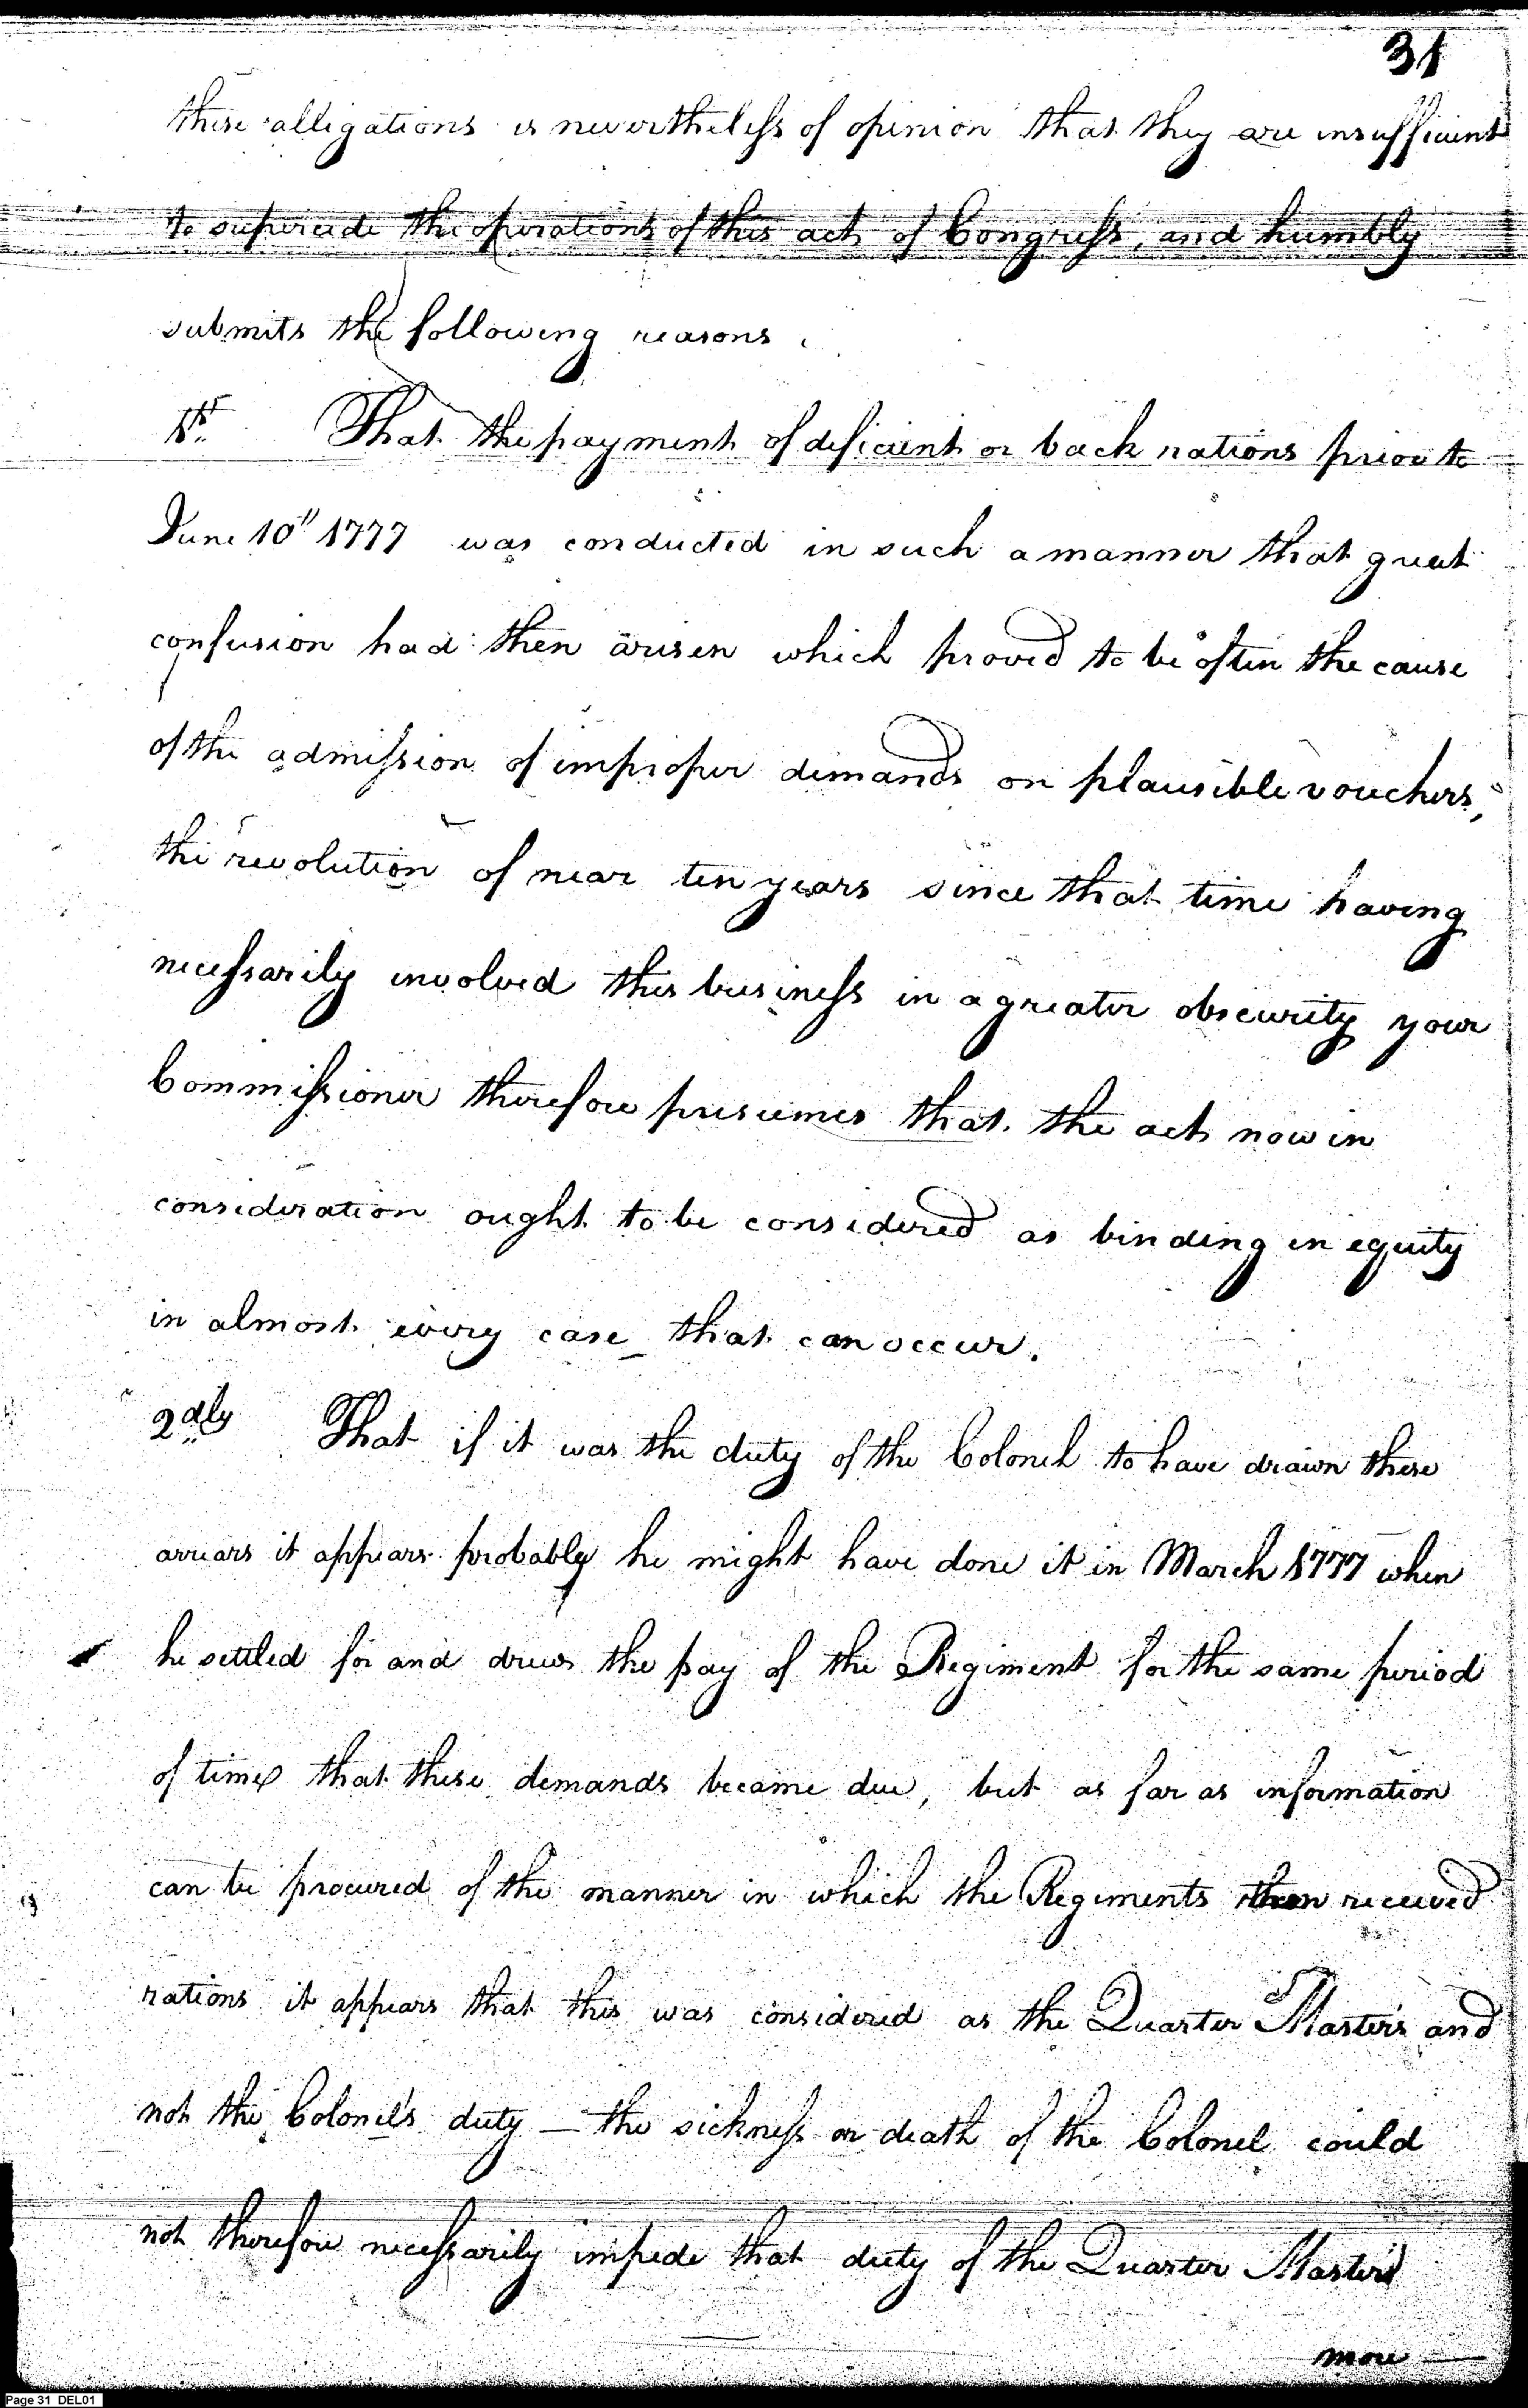 31
these alligations is nevertheless of opinion that they are insufficient
to supercede the operations of this act of Congress, and humbly
submits the following reasons.
1st. That the payment of deficient or back rations prior to
June 10" 1777 was conducted in such a manner that great
confusion had then arisen which proved to be often the cause
of the admission of improper demands on plausible vouchers,
the revolution of near ten years since that time having
necessarily involved this business in a greater obscurity your
Commissioner therefore presumes that the act now in
consideration ought to be considered as binding in equity
in almost every case that can occur.
2dly That if it was the duty of the Colonel to have drawn these
arrears it appears probably he might have done it in March 1777 when
he settled for and drew the pay of the Regiment for the same period
of time that these demands became due, but as far as information
can be procured of the manner in which the Regiments then received
rations it appears that this was considered as the Quarter Master's and
not the Colonel's duty — the sickness or death of the Colonel could
not therefore necessarily impede that duty of the Quarter Masters
more
Page 31 DEL01